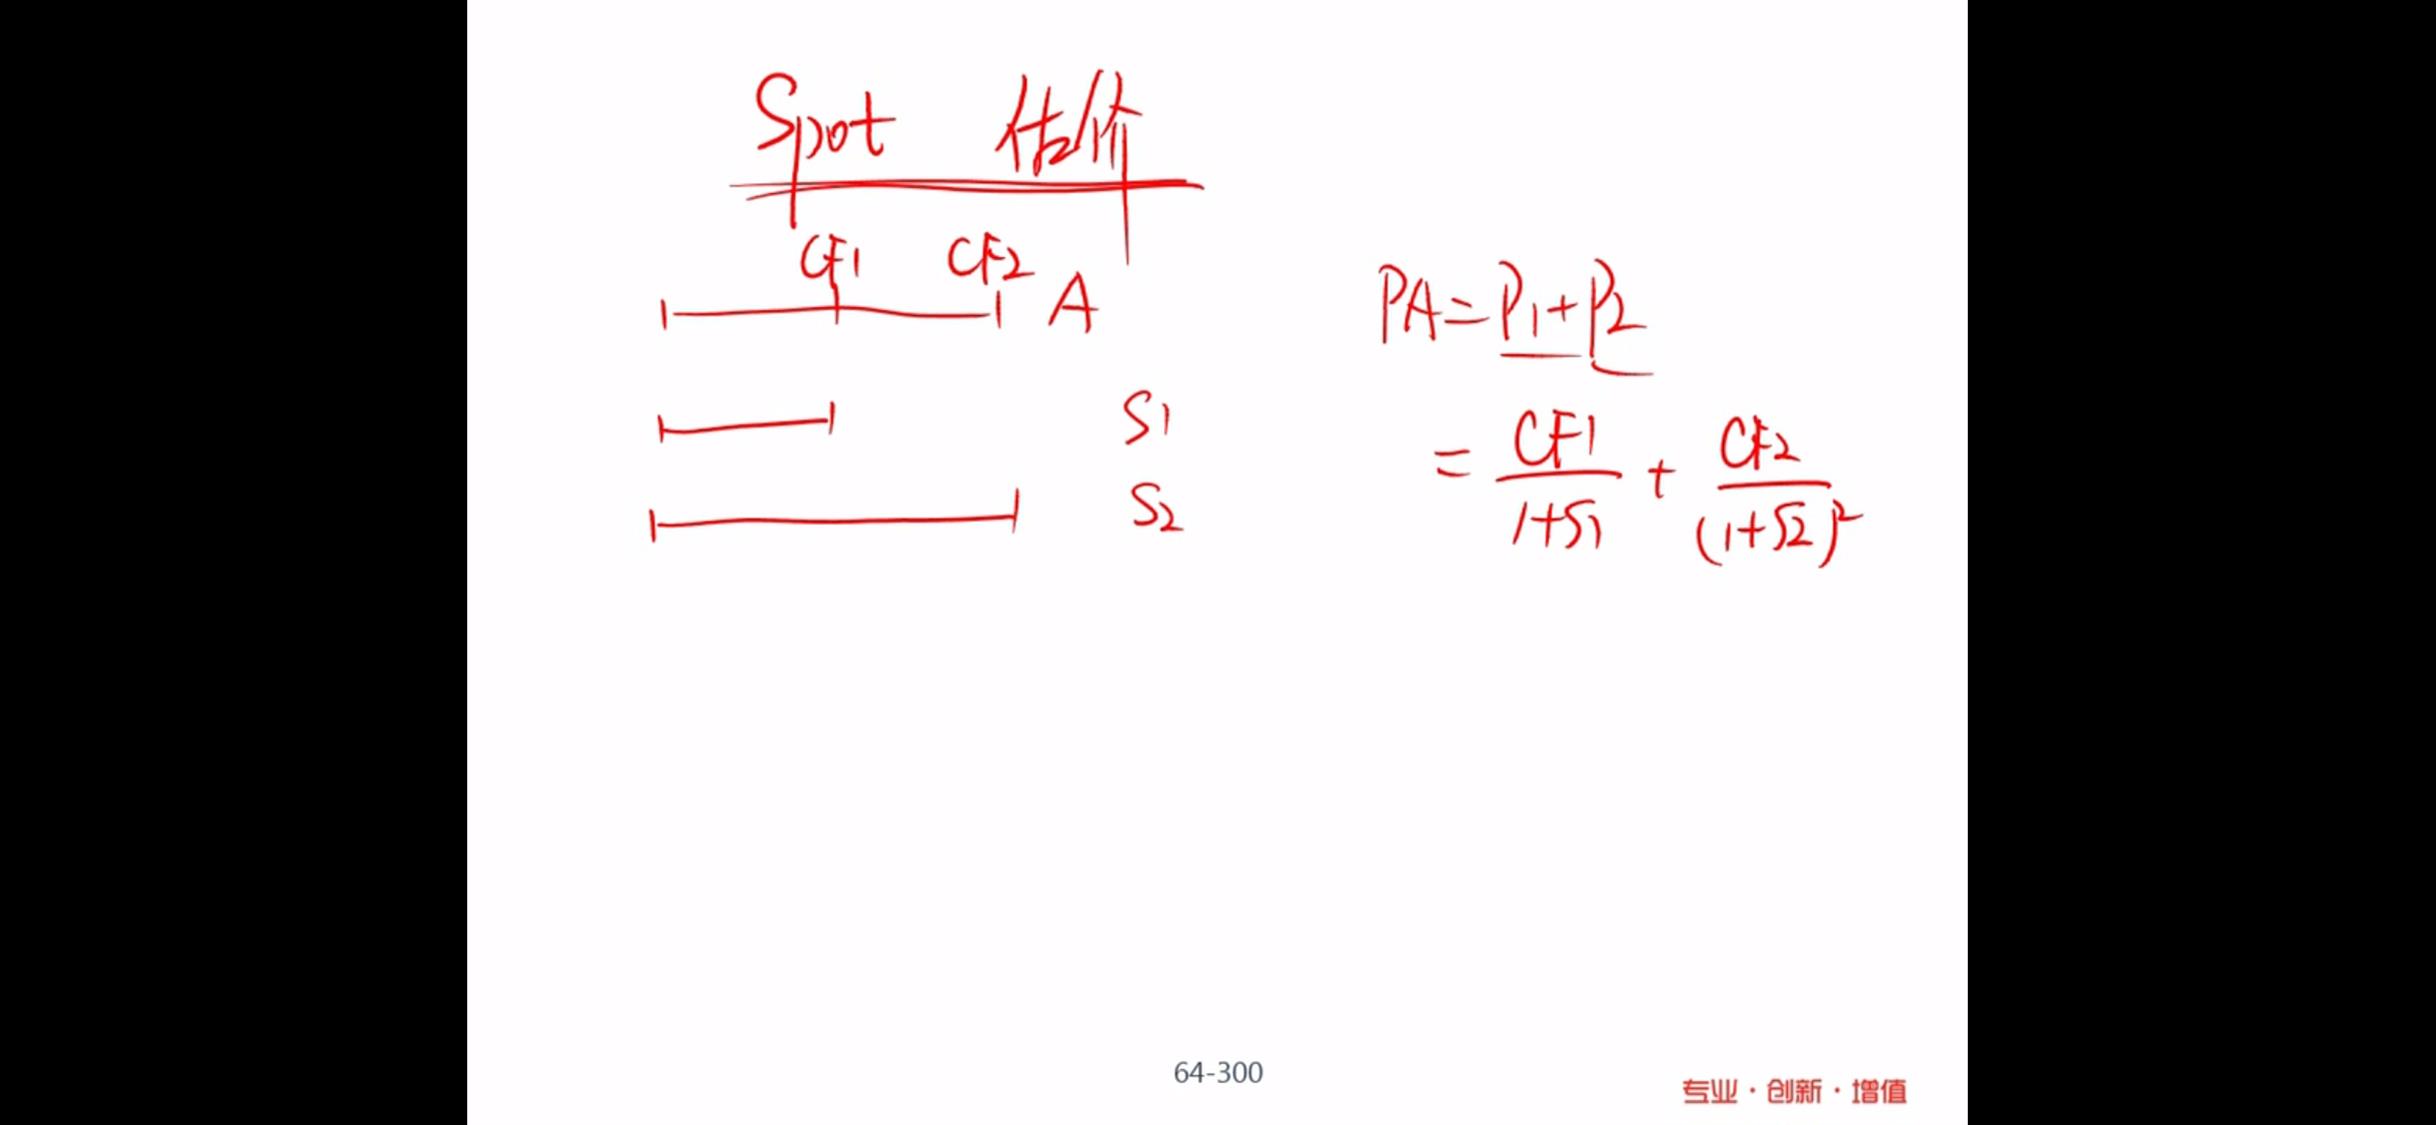 Spot 估价
CF1 CF2
A
S1
S2
PA=P1+P2
= CF1/1+S1 + CF2/(1+S2)²
64-300
专业·创新·增值